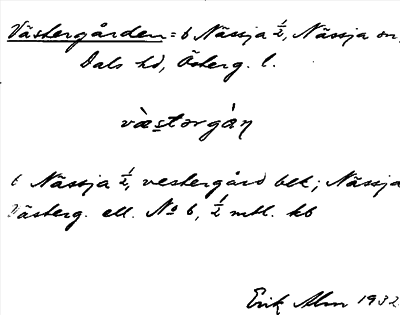 Västergården = 6 Nässja ½, Nässja sn,
Dals hd, Österg. l.
västərgån
6 Nässja ½, vestergård bek; Nässja
Västerg. ell. No 6, ½ mtl. kb
Erik Alm 1932.